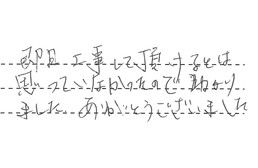 即日工事して頂けるとは
思っていなかったので助かり
ました。ありがとうございました